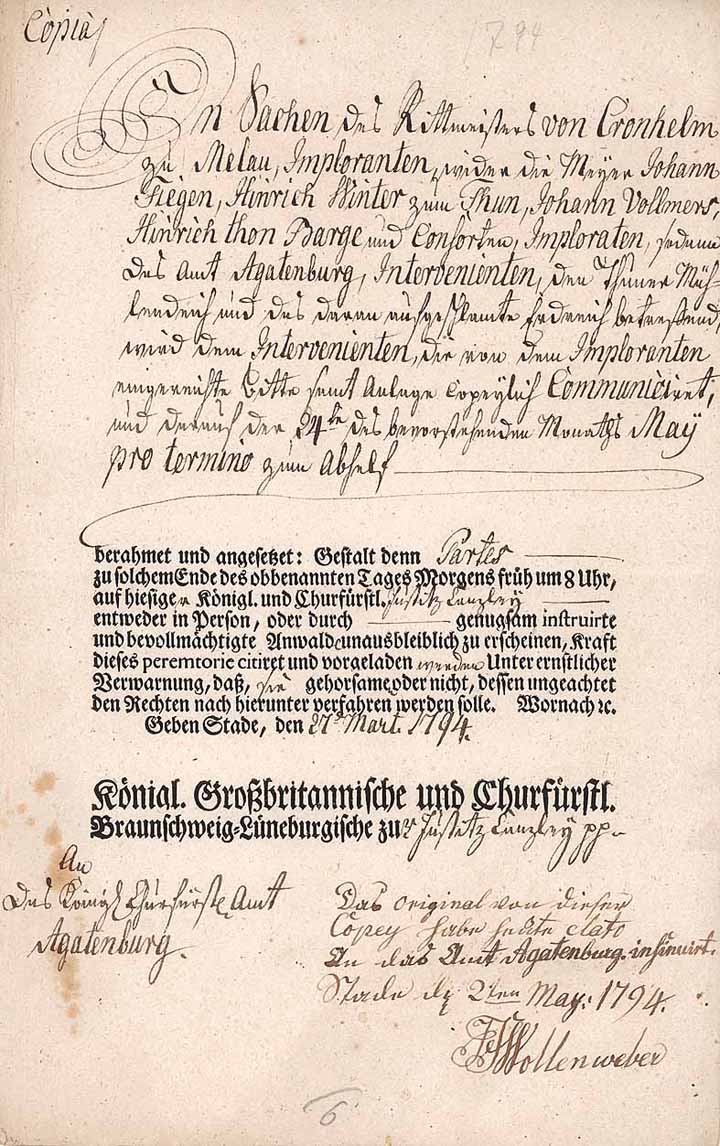 Copia
1794
In Sachen des Rittmeisters von Cronhelm
zu Melau, Imploranten, wider die Meyer Johann
Fiegen, Hinrich Winter zum Thun, Johann Vollmers,
Hinrich thon Barge und Consorten, Imploraten, sodann
das Amt Agatenburg, Intervenienten, den Thuner Müh-
lendeich und das daran ausgeschlamte Erdreich betreffend,
wird dem Intervenienten, die von dem Imploranten
eingereichte Bitte samt Anlage Copeylich Communiciret,
und darauf der 24te des bevorstehenden Monaths May
pro termino zum Abhelf
berahmet und angesetzet: Gestalt denn Partes
zu solchem Ende des obbenannten Tages Morgens früh um 8 Uhr,
auf hiesiger Königl. und Churfürstl. Justitz Canzley
entweder in Person, oder durch genugsam instruirte
und bevollmächtigte Anwald unausbleiblich zu erscheinen, Kraft
dieses peremtorie citiret und vorgeladen werden Unter ernstlicher
Verwarnung, daß, sie gehorsamen oder nicht, dessen ungeachtet
den Rechten nach hierunter verfahren werden solle. Wornach ꝛc.
Geben Stade, den 27t Mart. 1794.
Königl. Großbritannische und Churfürstl.
Braunschweig-Lüneburgische zur Justitz Canzley pp
An
das Königl Churfürstl. Amt
Agatenburg.
Das original von dieser
Copey habe heute dato
An das Amt Agatenburg insinuirt.
Stade d 2ten May. 1794.
Wollenweber
6